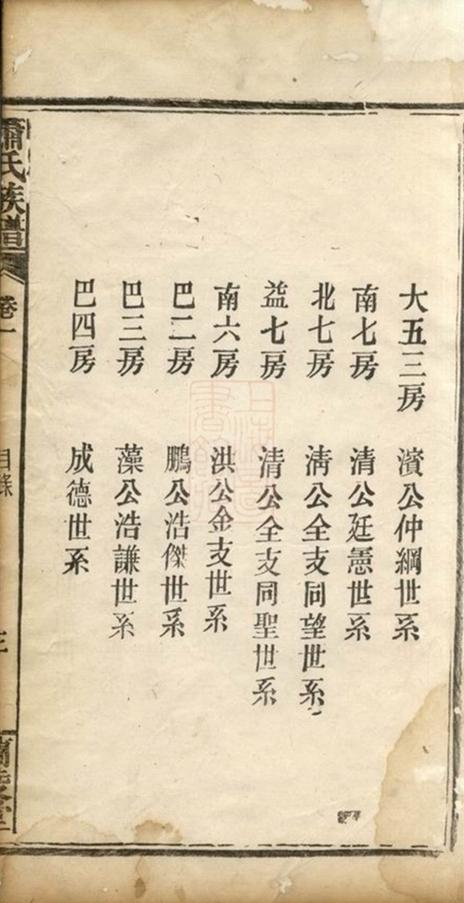 大五三房 濱公仲綱世系
南七房 清公廷憲世系
北七房 清公全支同望世系
益七房 清公全支同聖世系
南六房 洪公金支世系
巴二房 鵬公浩傑世系
巴三房 藻公浩謙世系
巴四房 成德世系
蕭氏族譜
卷一
目錄
三
蘭陵堂